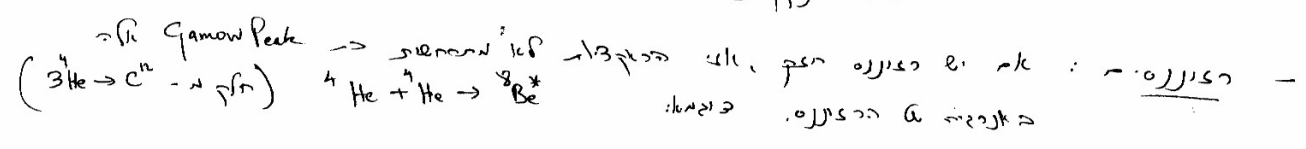 – רזוננסים : אם יש רזוננס חזק, אזי הראקציות לא מתרחשות ב- Gamow Peak אלא
באנרגיה של הרזוננס. דוגמא: ⁴He + ⁴He → ⁸Be* (חלק מ- 3⁴He → C¹²)